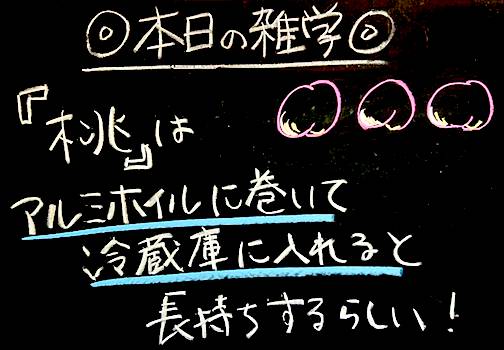 ◎本日の雑学◎
『桃』は
アルミホイルに巻いて
冷蔵庫に入れると
長持ちするらしい!